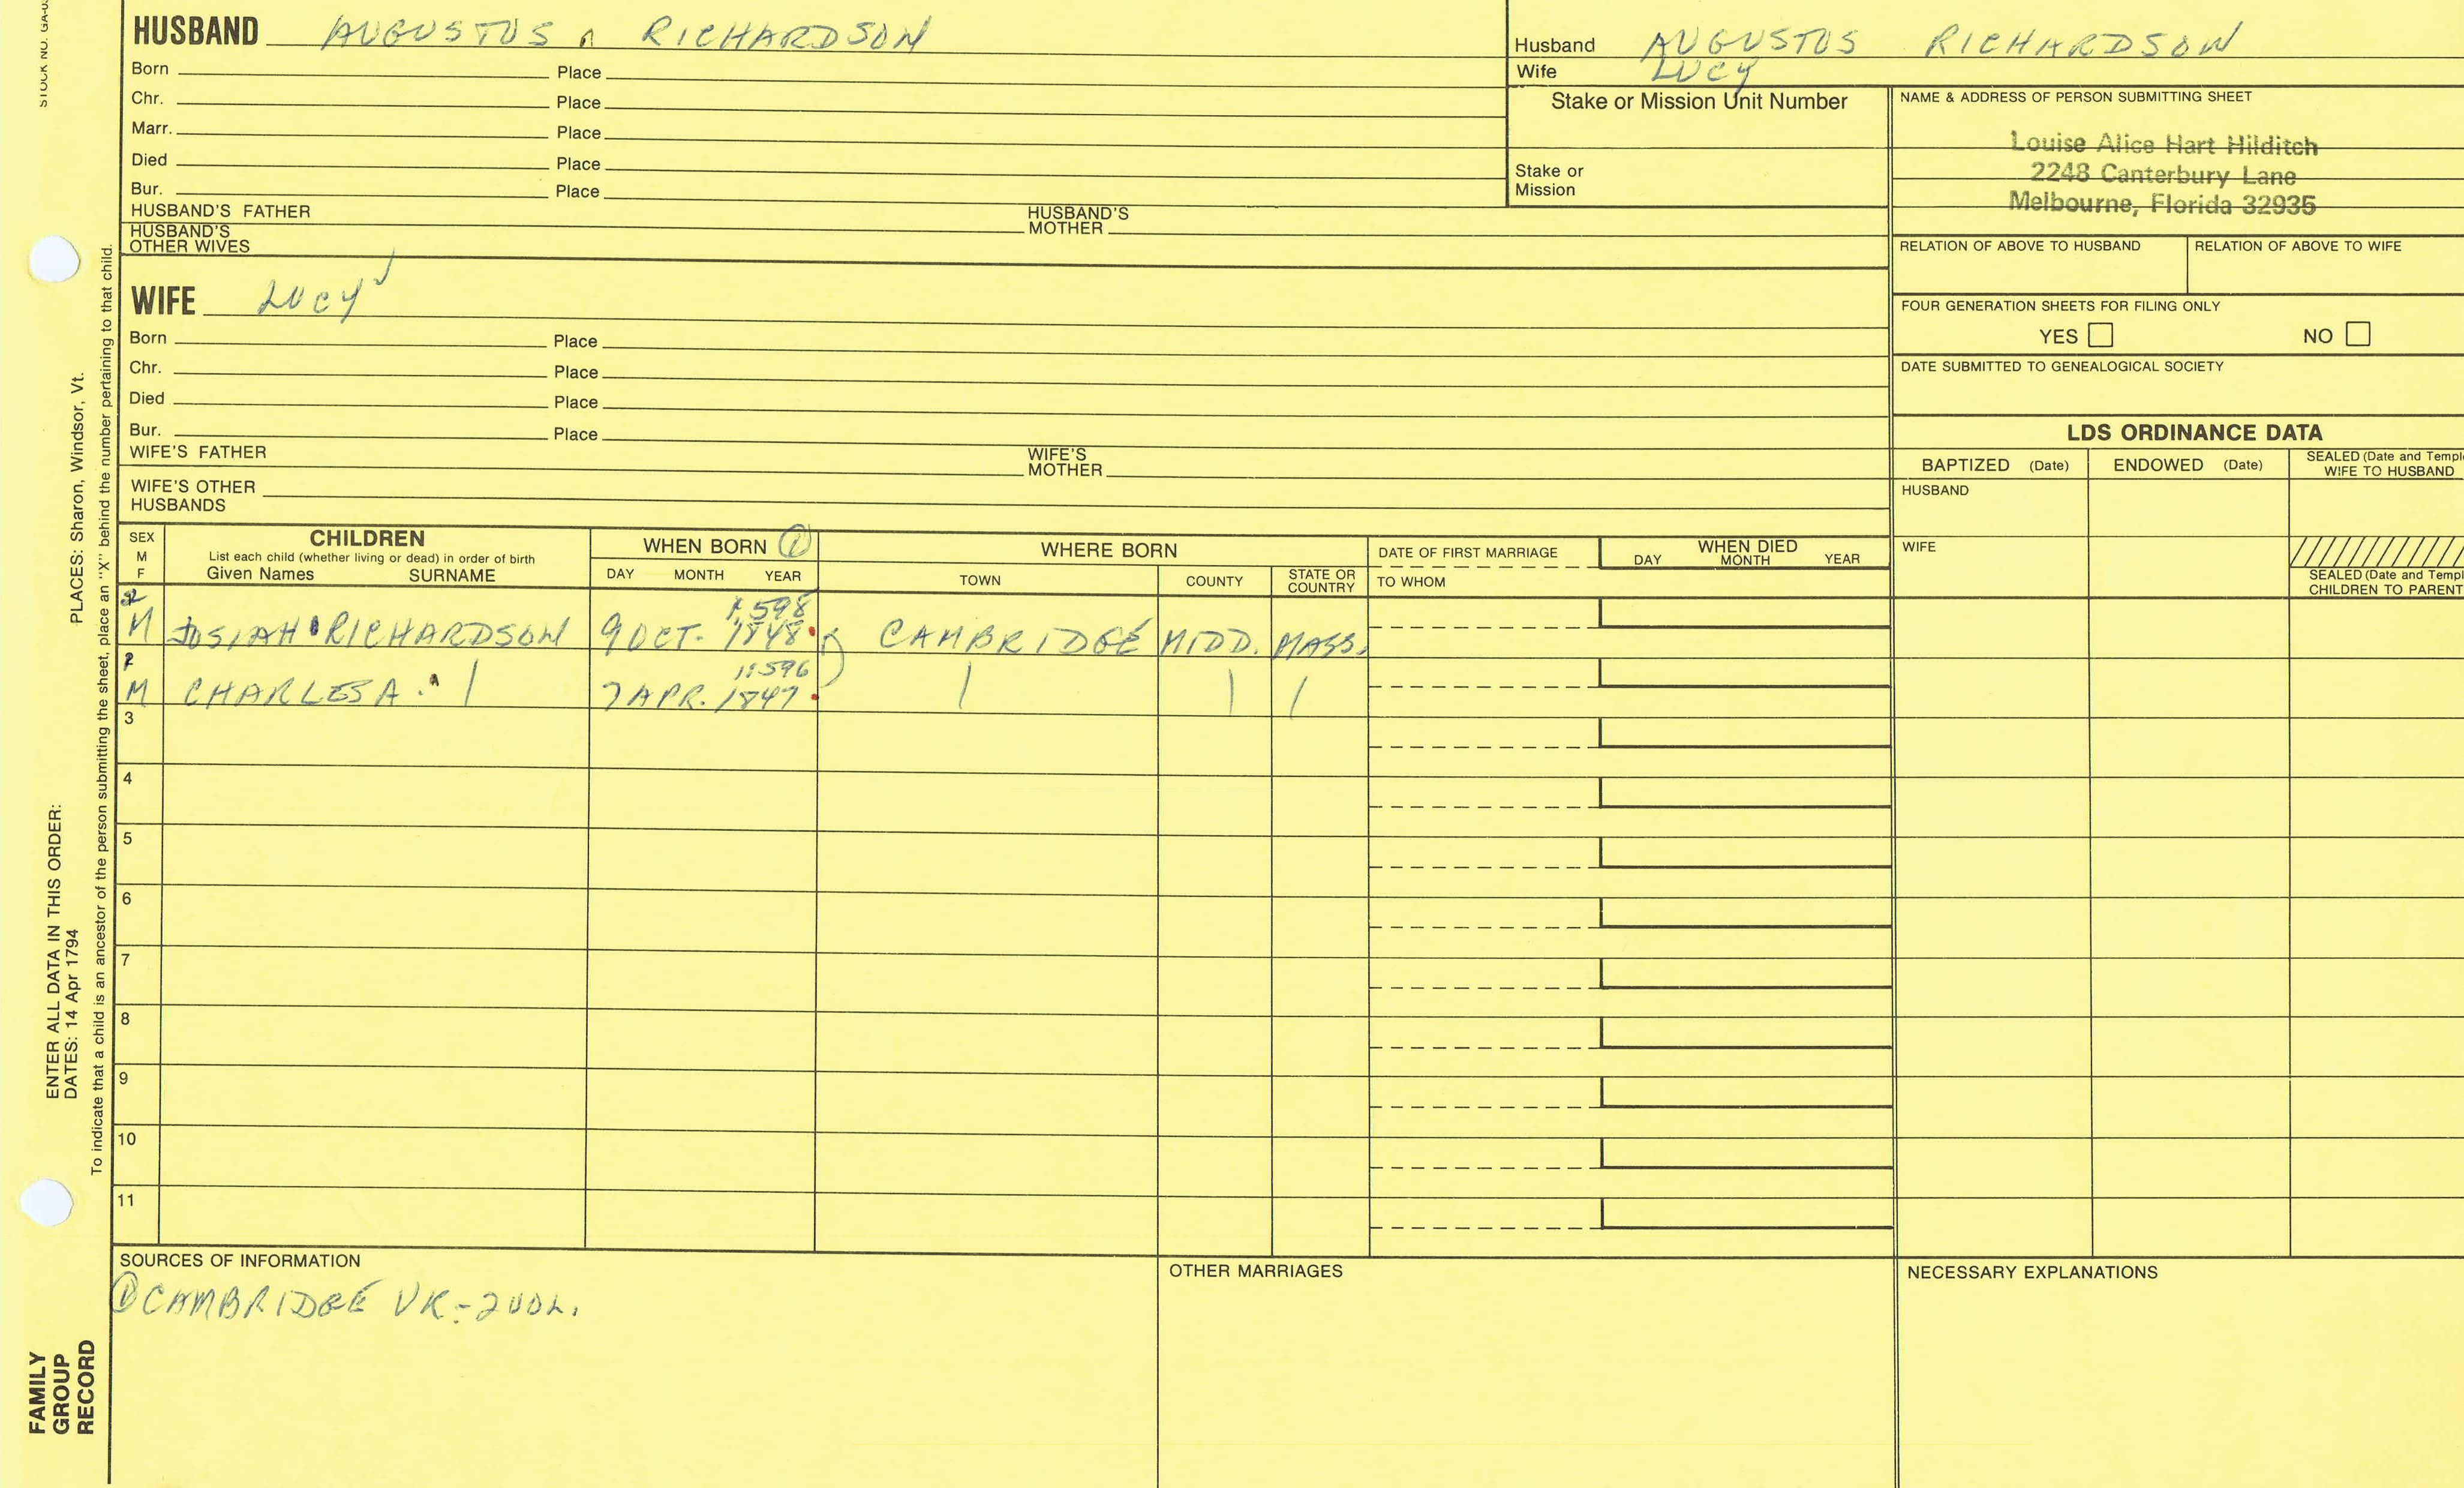 STOCK NO. GA-0
HUSBAND AUGUSTUS RICHARDSON
Born Place
Chr. Place
Marr. Place
Died Place
Bur. Place
HUSBAND'S FATHER HUSBAND'S MOTHER
HUSBAND'S OTHER WIVES
Husband AUGUSTUS RICHARDSON
Wife LUCY
Stake or Mission Unit Number
Stake or Mission
NAME & ADDRESS OF PERSON SUBMITTING SHEET
Louise Alice Hart Hilditch
2248 Canterbury Lane
Melbourne, Florida 32935
RELATION OF ABOVE TO HUSBAND RELATION OF ABOVE TO WIFE
FOUR GENERATION SHEETS FOR FILING ONLY
YES NO
DATE SUBMITTED TO GENEALOGICAL SOCIETY
WIFE LUCY
Born Place
Chr. Place
Died Place
Bur. Place
WIFE'S FATHER WIFE'S MOTHER
WIFE'S OTHER HUSBANDS
LDS ORDINANCE DATA
BAPTIZED (Date) ENDOWED (Date) SEALED (Date and Templ
WIFE TO HUSBAND
HUSBAND
WIFE
SEALED (Date and Templ
CHILDREN TO PARENT
SEX
M
F
CHILDREN
List each child (whether living or dead) in order of birth
Given Names SURNAME
WHEN BORN ①
DAY MONTH YEAR
WHERE BORN
TOWN COUNTY STATE OR COUNTRY
DATE OF FIRST MARRIAGE
TO WHOM
WHEN DIED
DAY MONTH YEAR
2
1:598
M JOSIAH RICHARDSON 9 OCT. 1848 CAMBRIDGE MIDD. MASS.
1
1:596
M CHARLES A. | 7 APR. 1847 | | |
3
4
5
6
7
8
9
10
11
SOURCES OF INFORMATION
① CAMBRIDGE VR - 2 VOL.
OTHER MARRIAGES
NECESSARY EXPLANATIONS
ENTER ALL DATA IN THIS ORDER:
DATES: 14 Apr 1794 PLACES: Sharon, Windsor, Vt.
To indicate that a child is an ancestor of the person submitting the sheet, place an "X" behind the number pertaining to that child.
FAMILY
GROUP
RECORD